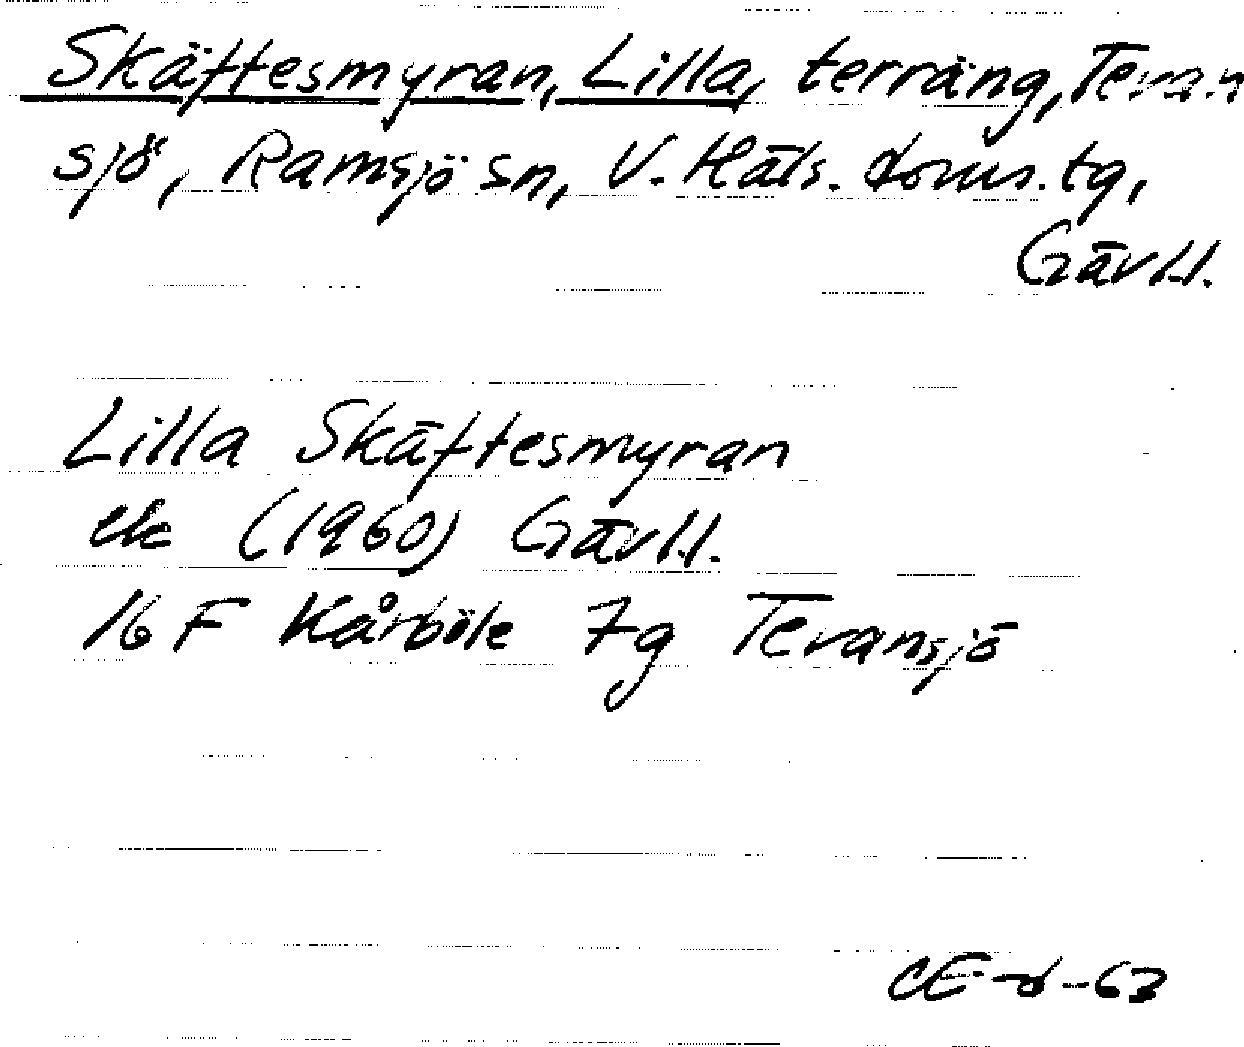 Skäftesmyran, Lilla, terräng, Tevan
sjö, Ramsjö sn, V. Häls. doms. tg,
Gävl.l.
Lilla Skäftesmyran
ek (1960) Gävl.l.
16 F Kårböle 7g Tevansjö
CE-d-63